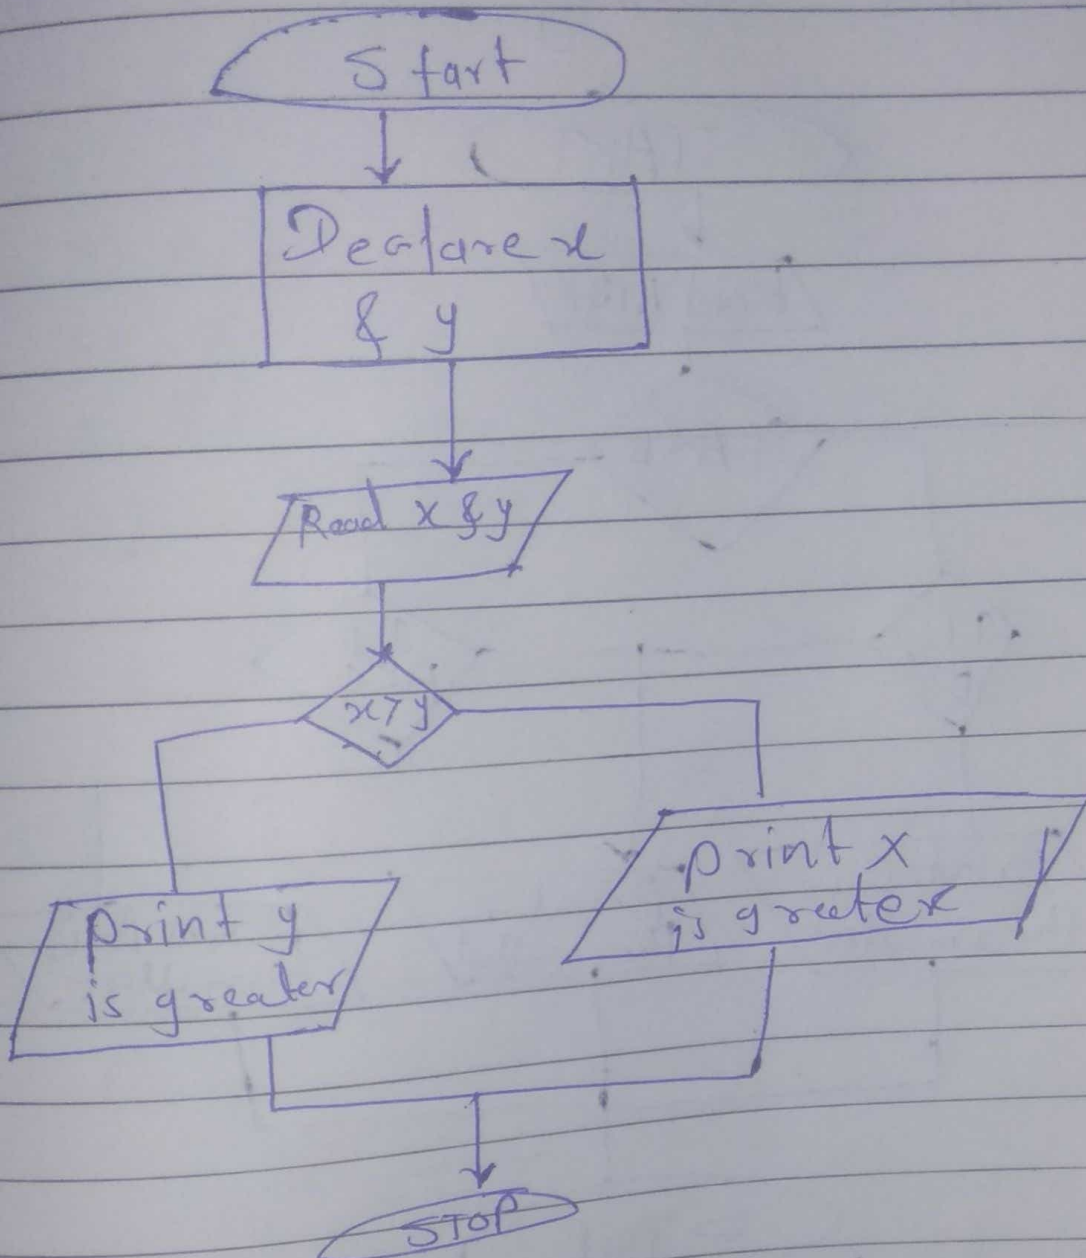 Start
Dealare x
& y
Read x & y
x>y
print x
is greater
print y
is greater
STOP